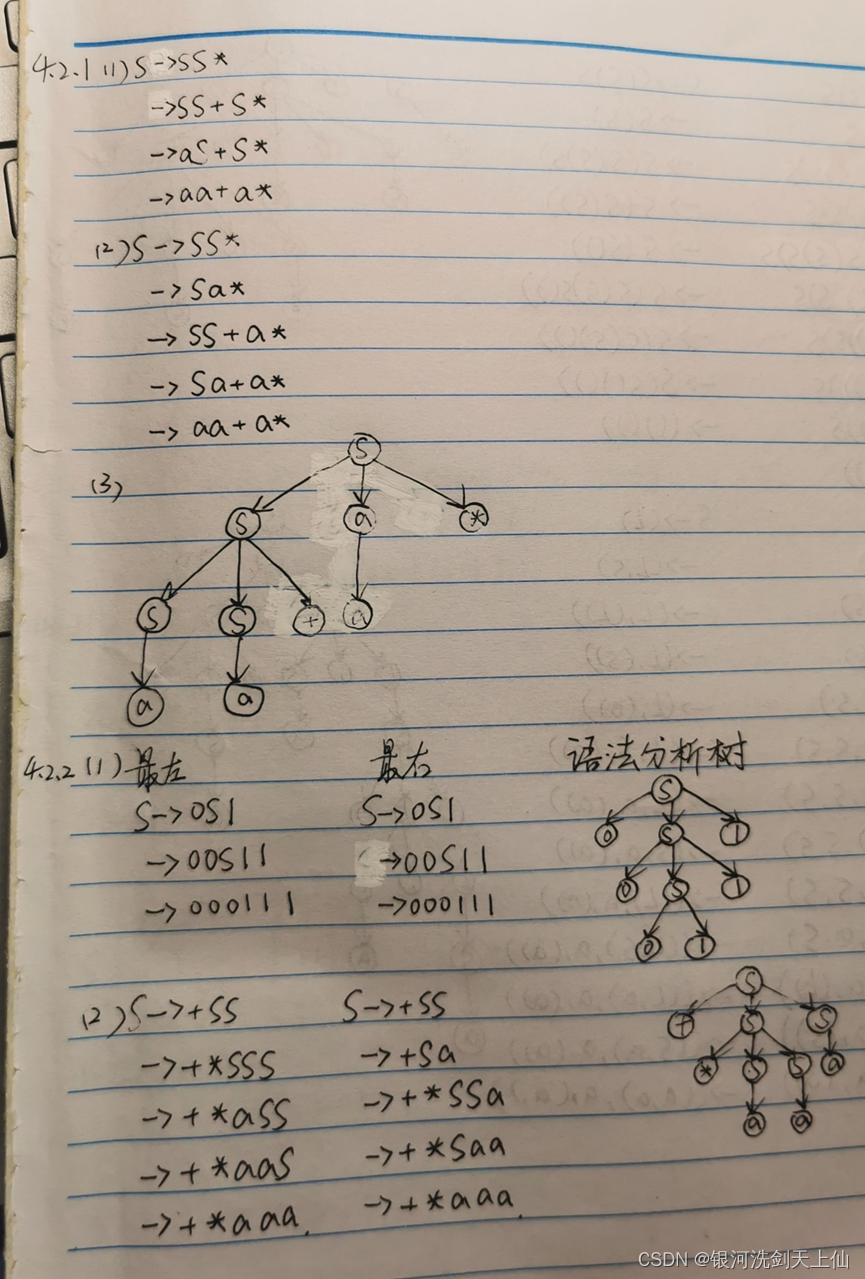 4.2.1 (1) S->SS*
->SS+S*
->aS+S*
->aa+a*
(2) S->SS*
-> Sa*
-> SS+a*
-> Sa+a*
-> aa+a*
(3)
S
S a *
S S + a
a a
4.2.2 (1) 最左 最右 语法分析树
S->0S1 S->0S1
->00S11 ->00S11
->000111 ->000111
S
0 S 1
0 S 1
0 1
(2) S->+SS S->+SS
->+*SSS ->+Sa
->+*aSS ->+*SSa
->+*aaS ->+*Saa
->+*aaa. ->+*aaa.
S
+ S S
* S S a
a a
CSDN @银河洗剑天上仙